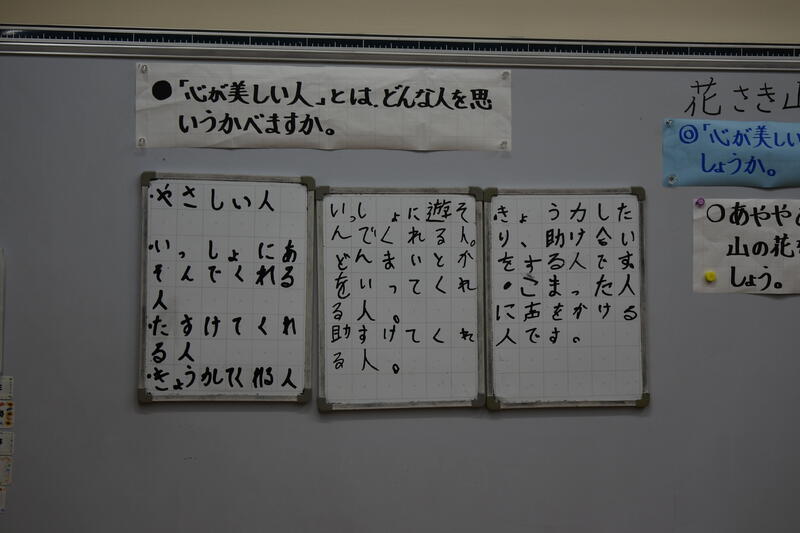 ●「心が美しい人」とは、どんな人を思
いうかべますか。
・やさしい人
・いっしょにあ
そんでくれる
人
・たすけてくれ
る人
・きょう力してくれる人
いっしょに遊そ
んでくれる人。
どんまいとか
をいってくれ
る人。
助すけてくれ
る人。
きょう力した
り、助け合い
をする人です
・こまった人
に声をかける
人です。
花さき山
◎「心が美しい
しょうか。
○あやや
山の花
しょう。